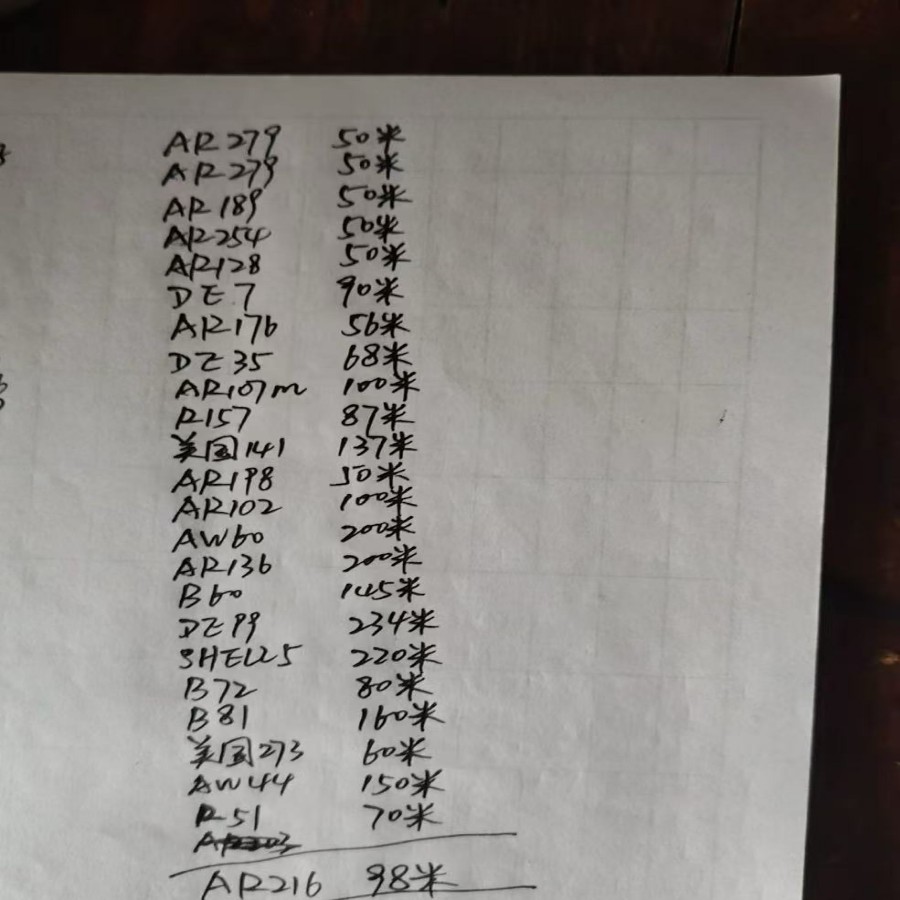 AR279 50米
AR279 50米
AR189 50米
AR254 50米
AR128 50米
DE7 90米
AR176 56米
DE35 68米
AR107m 100米
R157 87米
美国141 137米
AR198 50米
AR102 100米
AW60 200米
AR136 200米
B60 145米
DE99 234米
SHEL25 220米
B72 80米
B81 160米
美国273 60米
AW44 150米
R51 70米
AR216 98米